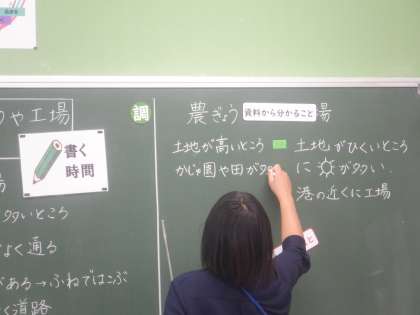 や工場
調
農ぎょう
資料から分かること
場
書く
時間
土地が高いところ
かじゅ園や田が
土地がひくいところ
に☼がタタい.
港の近くに工場
タタいところ
よく通る
がある→ふねではこぶ
く道路
と